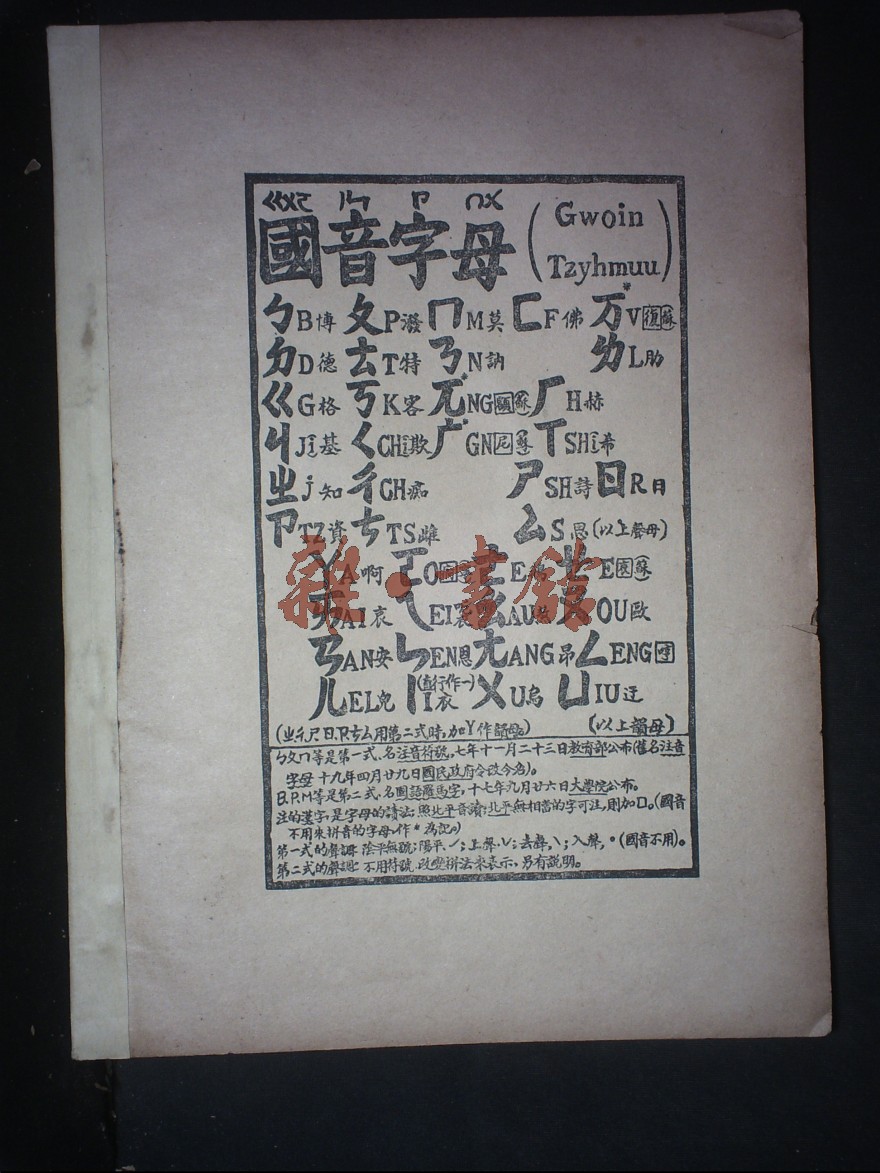 ㄍㄨㄛ ㄧㄣ ㄗ ㄇㄨ
國音字母 (Gwoin Tzyhmuu)
ㄅB博 ㄆP潑 ㄇM莫 ㄈF佛 万V復蘇
ㄉD德 ㄊT特 ㄋN訥 ㄌL肋
ㄍG格 ㄎK客 兀NG額蘇 ㄏH赫
ㄐJi基 ㄑCHi欺 广GN尼蘇 ㄒSHi希
ㄓJ知 ㄔCH痴 ㄕSH詩 ㄖR日
ㄗTZ資 ㄘTS雌 ㄙS思(以上聲母)
ㄚA啊 ㄛO ㄜE ㄝE
ㄞAI哀 ㄟEI ㄠAU ㄡOU歐
ㄢAN安 ㄣEN恩 ㄤANG昂 ㄥENG哼
ㄦEL兒 ㄧ(直行作一)I衣 ㄨU烏 ㄩIU迂
(ㄓㄔㄕㄖㄗㄘㄙ用第二式時,加Y作韻母。) (以上韻母)
ㄅㄆㄇ等是第一式,名注音符號,七年十一月二十三日教育部公布(舊名注音
字母 十九年四月廿九日國民政府令改今名)。
B.P.M等是第二式,名國語羅馬字,十七年九月廿六日大學院公布。
注的漢字,是字母的讀法,照北平音讀;北平無相當的字可注,則加口。(國音
不用來拼音的字母,作*為記。)
第一式的聲調:陰平無號;陽平,ˊ;上聲,ˇ;去聲,ˋ;入聲,•(國音不用)。
第二式的聲調:不用符號,改變拼法來表示,另有說明。
雜·書館